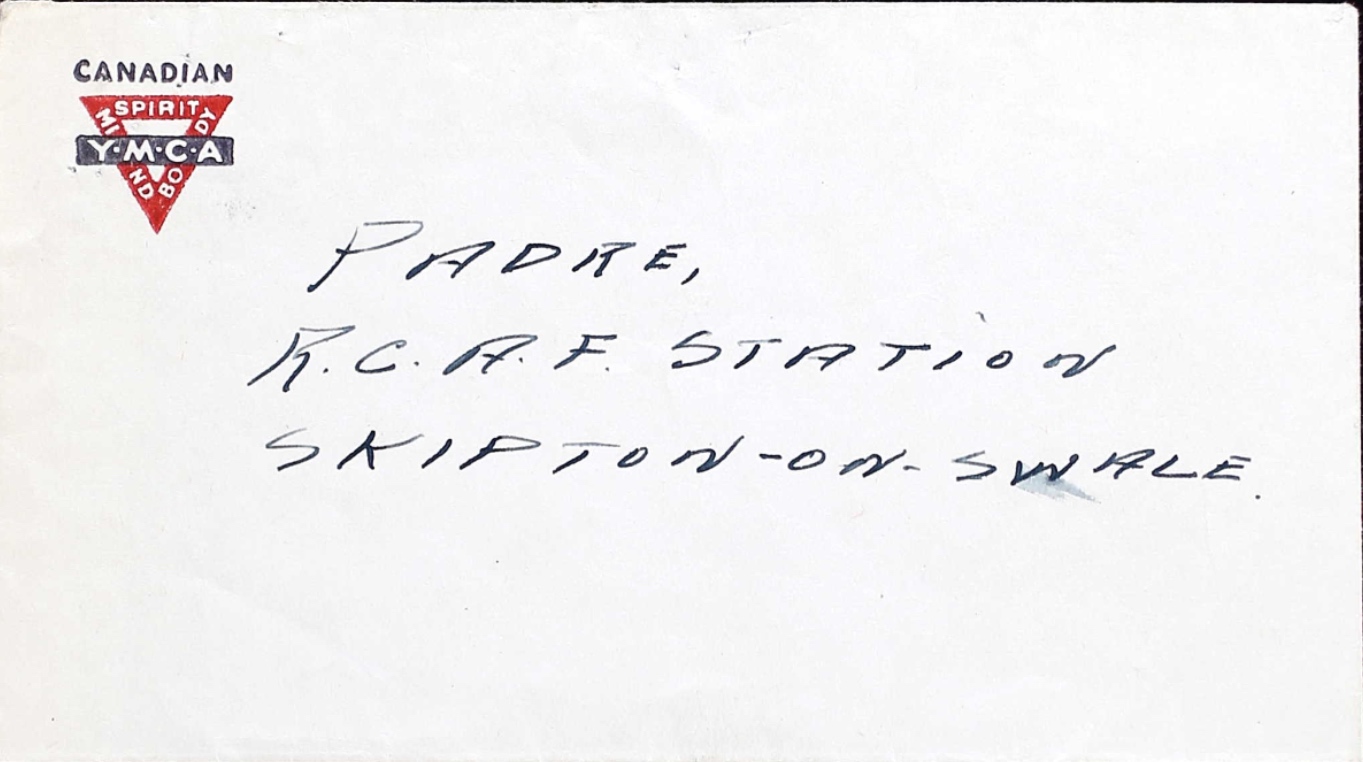 CANADIAN
SPIRIT
MIND
BODY
Y·M·C·A
PADRE,
R.C.A.F. STATION
SKIPTON-ON-SWALE.